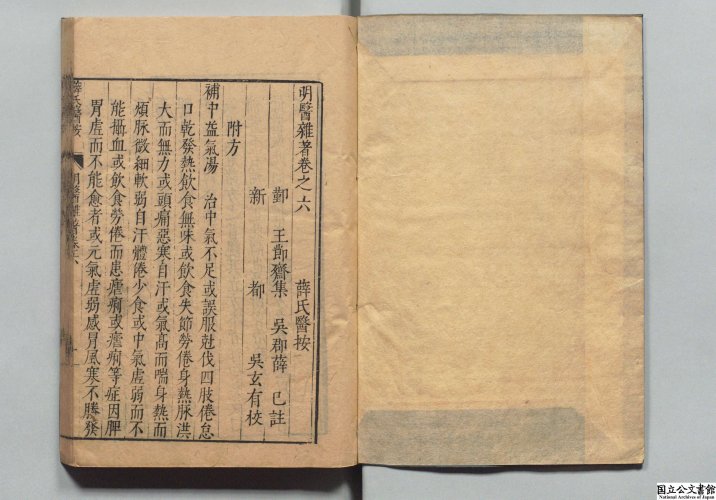 明醫雜著卷之六 薛氏醫按
鄞 王節齋集 吳郡薛 已註
新 都 吳玄有校
附方
補中益氣湯 治中氣不足或誤服尅伐四肢倦怠
口乾發熱飲食無味或飲食失節勞倦身熱脉洪
大而無力或頭痛惡寒自汗或氣高而喘身熱而
煩脉微細軟弱自汗體倦少食或中氣虛弱而不
能攝血或飲食勞倦而患瘧痢或瘧痢等症因脾
胃虛而不能愈者或元氣虛弱感冒風寒不勝發
薛氏醫按 明醫雜著卷六 一
国立公文書館
National Archives of Japan